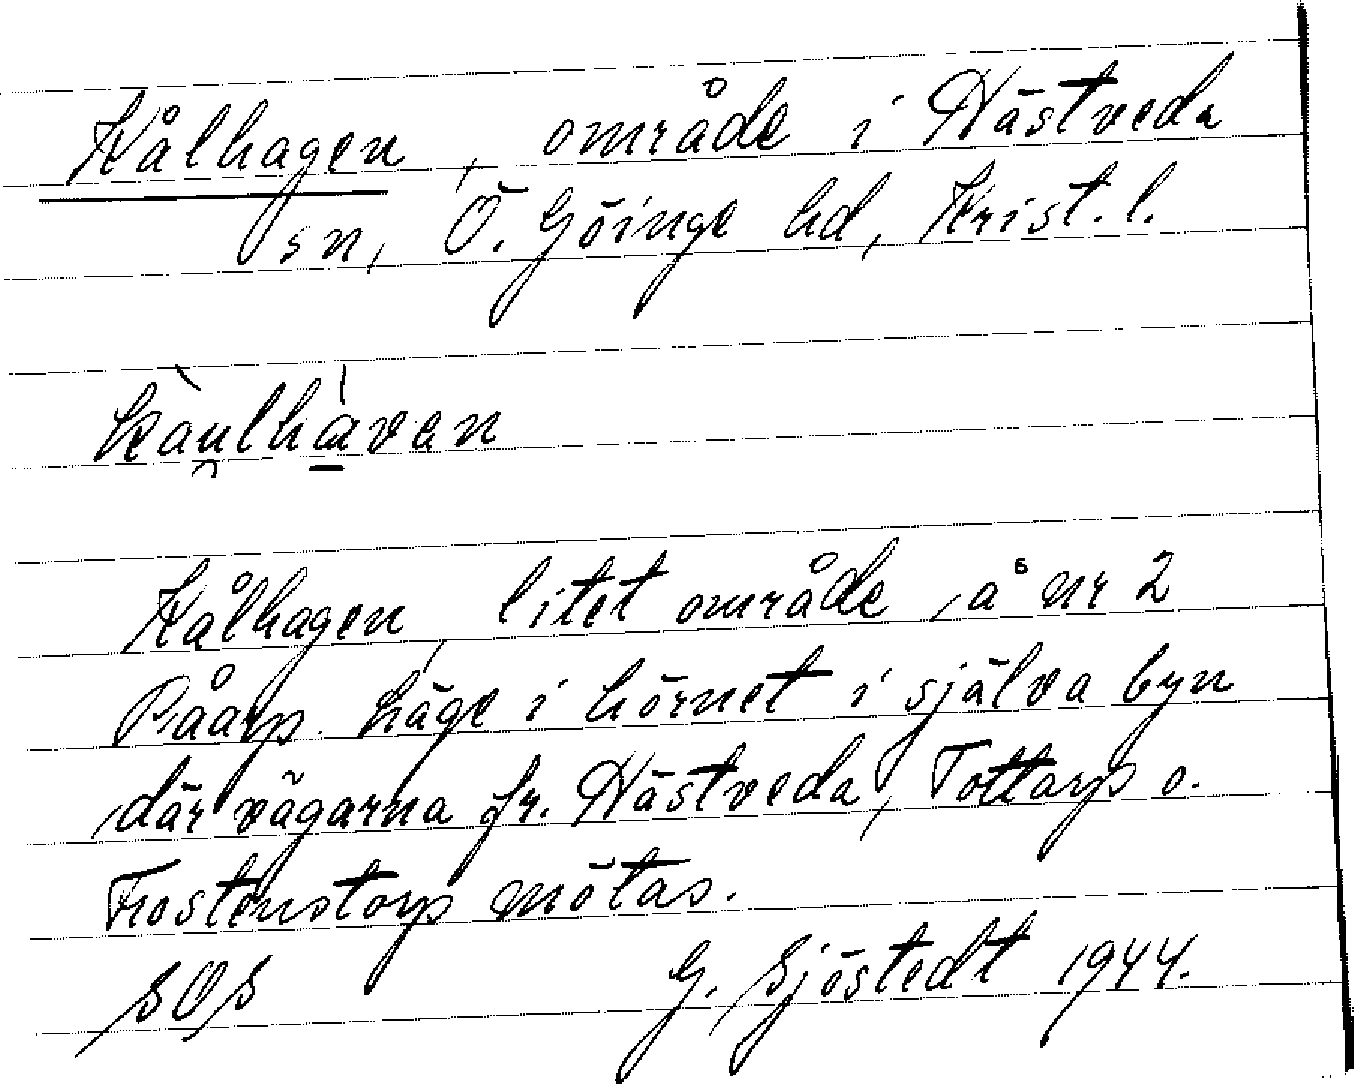 Kålhagen, område i Hästveda
sn, Ö. Göinge hd, Krist. l.
kàu̯lhàvan
Kålhagen, litet område, å nr 2
Råarp. Läge i hörnet i själva byn
där vägarna fr. Hästveda, Tottarp o.
Frostenstorp mötas.
SOS G. Sjöstedt 1944.